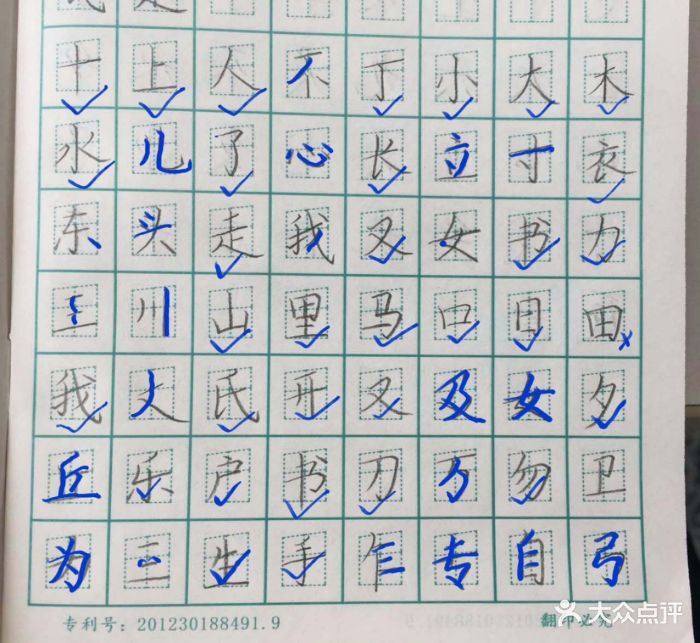 十上人不丁小大木
水儿了心长立寸衣
东头走我又女书力
王川山里马口目田
我丈氏开又及女夕
丘乐户书刀万勿卫
为三生手乍专自弓
专利号：201230188491.9 翻印必究
大众点评